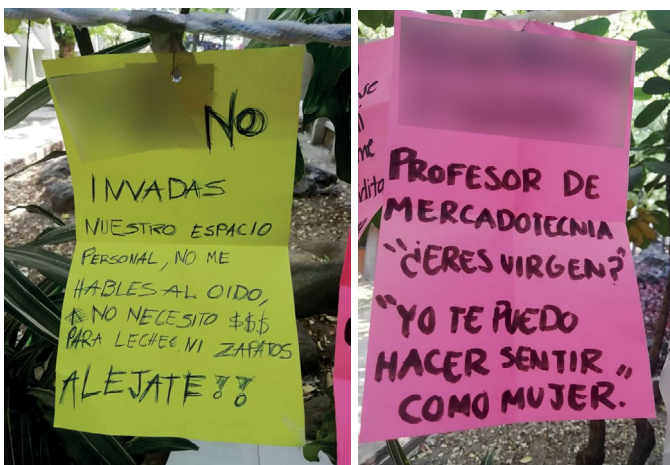 NO
INVADAS
NUESTRO ESPACIO
PERSONAL, NO ME
HABLES AL OIDO,
NO NECESITO $$$
PARA LECHE NI ZAPATOS
ALEJATE!!
PROFESOR DE
MERCADOTECNIA
"¿ERES VIRGEN?"
"YO TE PUEDO
HACER SENTIR
COMO MUJER."